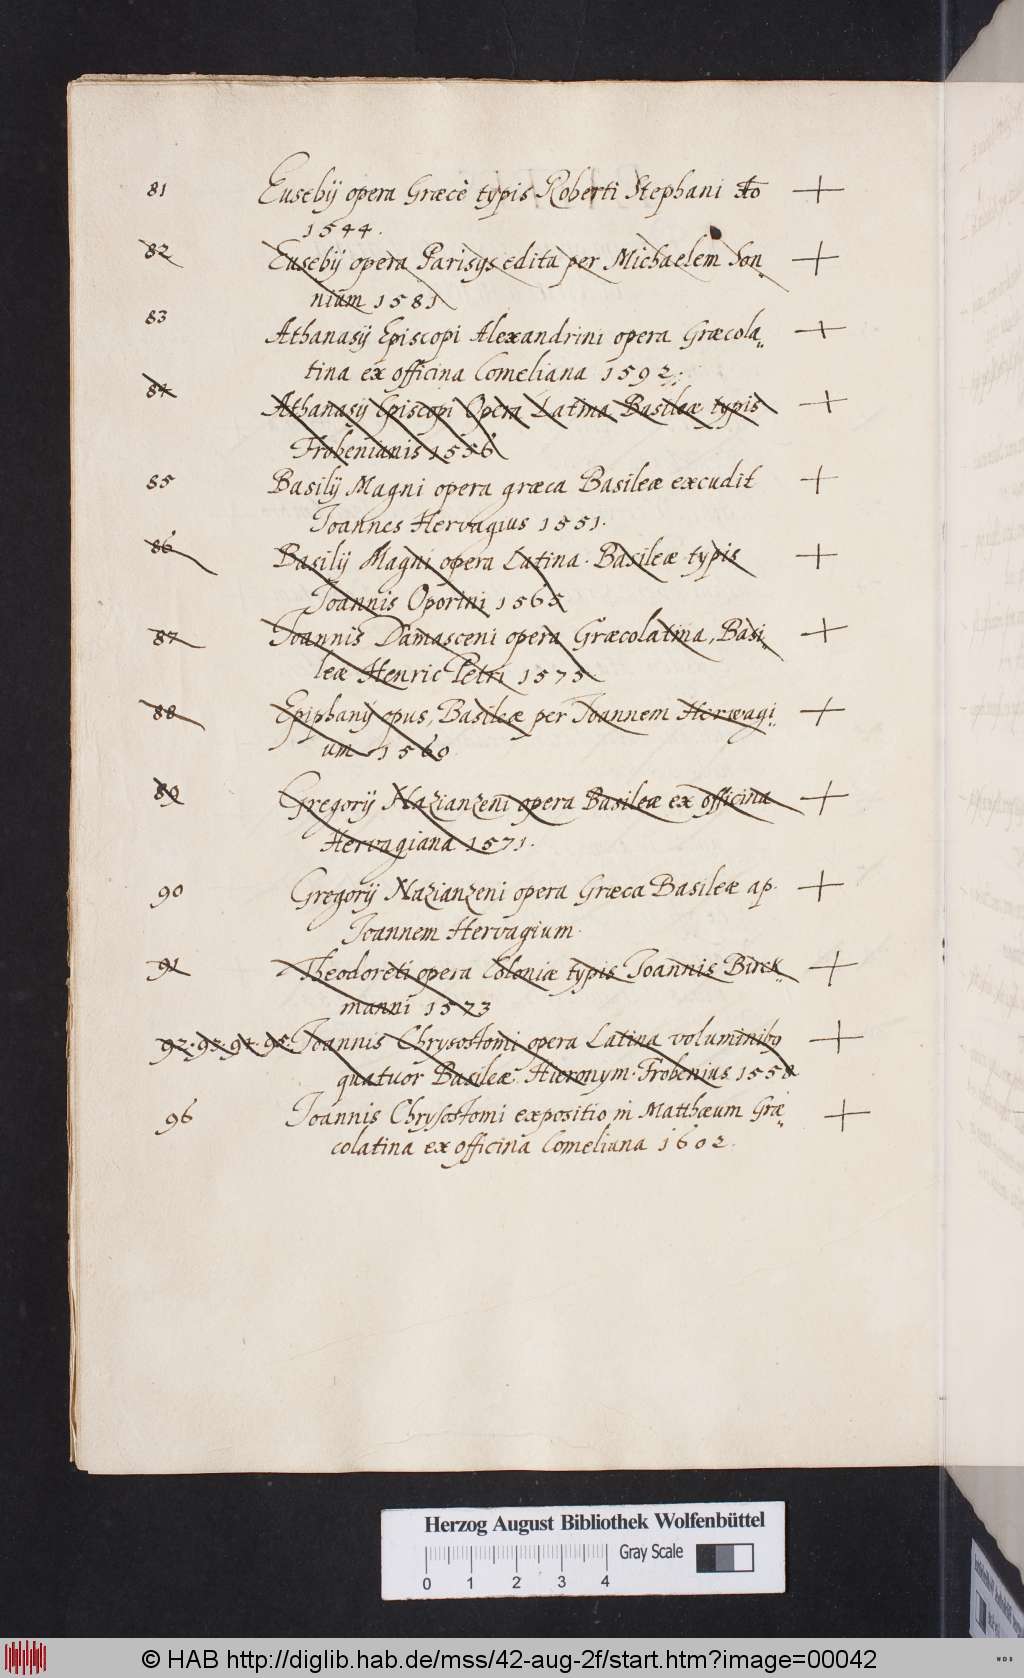 81 Eusebij opera Græcè typis Roberti Stephani +
1544.
82 Eusebij opera Parisijs edita per Michaelem Son„ +
nium 1581
83 Athanasij Episcopi Alexandrini opera Græcola„ +
tina ex officina Comeliana 1592.
84 Athanasij Episcopi Opera Latina Basileæ typis +
Frobenianis 1556
85 Basilij Magni opera græca Basileæ excudit +
Joannes Hervagius 1551.
86 Basilij Magni opera Latina. Basileæ typis +
Joannis Oporini 1565
87 Joannis Damasceni opera Græcolatina, Basi„ +
leæ Henric Petri 1575
88 Epiphanij opus, Basileæ per Joannem Herwagi„ +
um 1560
89 Gregorij Nazianzeni opera Basileæ ex officina +
Hervagiana 1571.
90 Gregorij Nazianzeni opera Græca Basileæ ap. +
Joannem Hervagium.
91 Theodoreti opera Coloniæ typis Joannis Birck„ +
manni 1573
92. 93. 94. 95. Joannis Chrysostomi opera Latina voluminibꝰ +
quatuor Basileæ Hieronym. Frobenius 1558
96 Joannis Chrysostomi expositio in Matthæum Græ„ +
colatina ex officina Comeliana 1602.
Herzog August Bibliothek Wolfenbüttel
Gray Scale
0 1 2 3 4
© HAB http://diglib.hab.de/mss/42-aug-2f/start.htm?image=00042